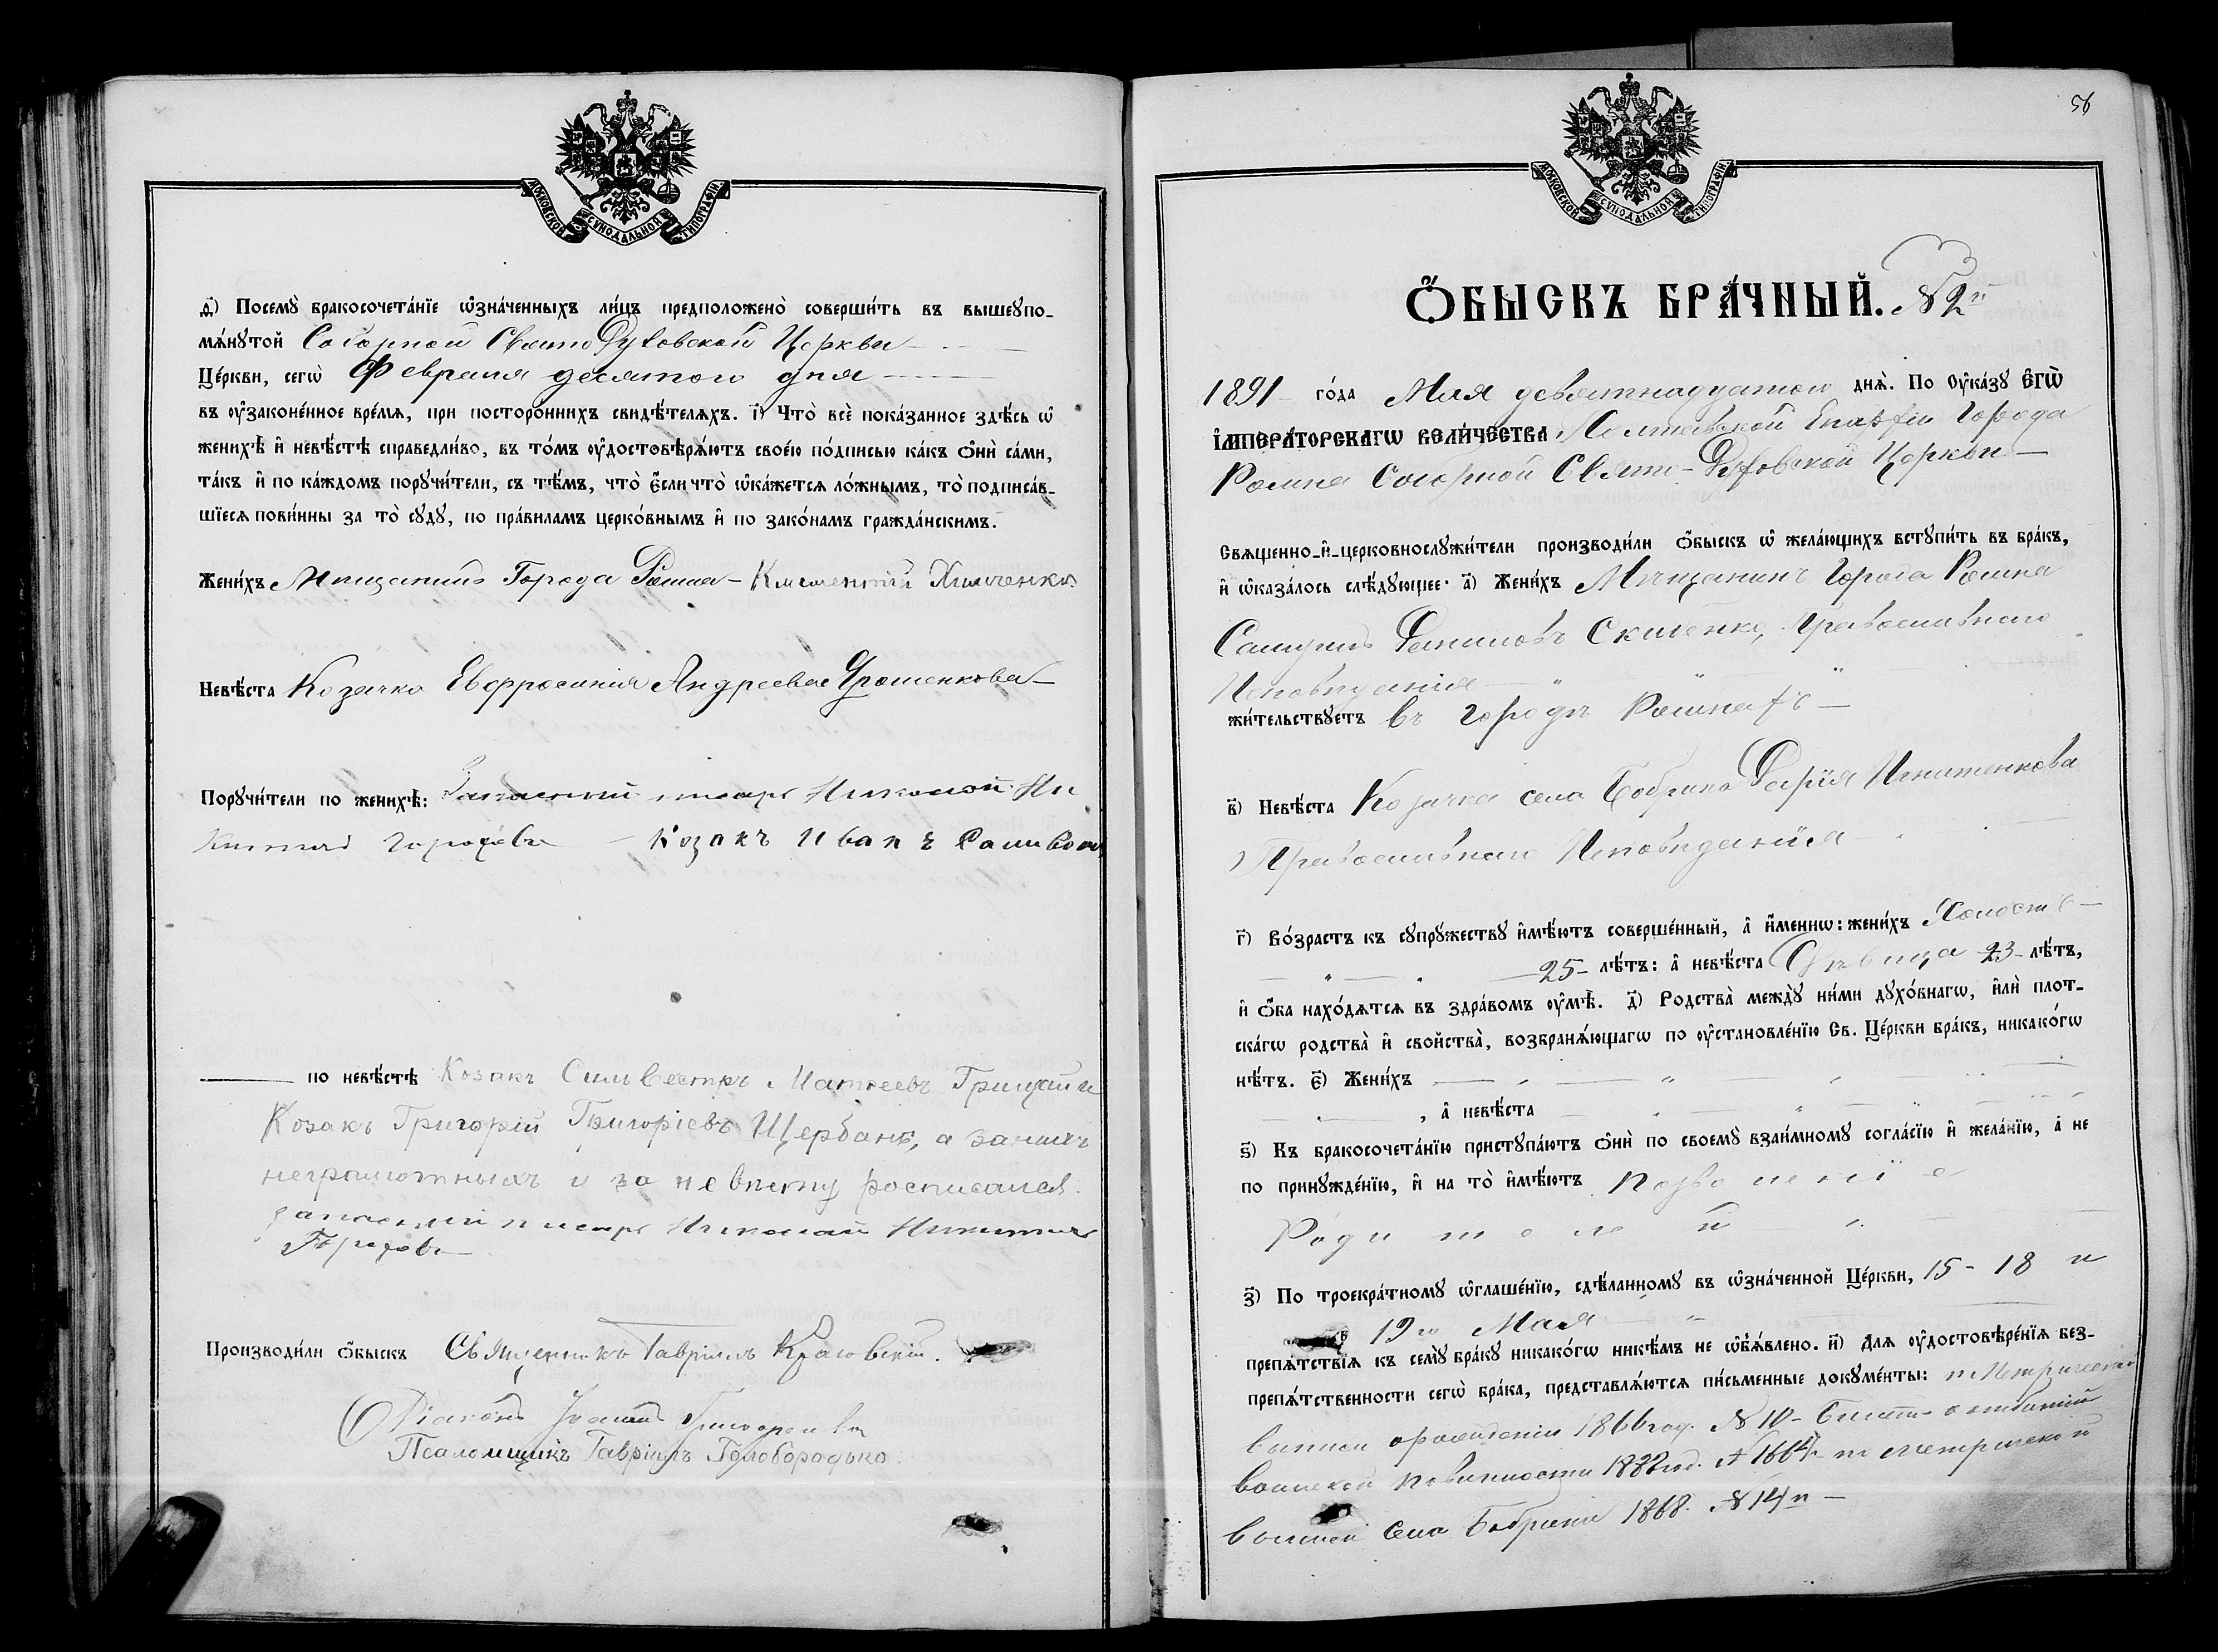 МОСКОВСКОЙ СѴНОДАЛЬНОЙ ТИПОГРАФІИ.
ѳ҃) Посемꙋ̀ бракосочета́нїе ѡ҆зна́ченныхъ ли́цъ предположено̀ соверши́ть въ вышеꙋпо-
мѧ́нꙋтой Соборной Свято Духовской Церкви
Це́ркви, сегѡ̀ Февраля десятого дня
въ ᲂу҆законе́нное вре́мѧ, при посторо́ннихъ свидѣ́телѧхъ. і҃) Что̀ всѐ пока́занное здѣ́сь ѡ҆
женихѣ̀ и҆ невѣ́стѣ справедли́во, въ то́мъ ᲂу҆достовѣрѧ́ютъ свое́ю по́дписью ка́къ ѻ҆нѝ са́ми,
та́къ и҆ по ка́ждомъ порꙋчи́тели, съ тѣ́мъ, что̀ є҆́сли что̀ ѡ҆ка́жетсѧ ло́жнымъ, то̀ подписа́в-
шїесѧ пови́нны за то̀ сꙋдꙋ̀, по пра́виламъ церко́внымъ и҆ по зако́намъ гражда́нскимъ.
Жени́хъ Мещанинъ Города Ромна – Климентій Химченко
Невѣ́ста Козачка Евфросинія Андреева Ярошенкова
Порꙋчи́тели по женихѣ̀: Запасный писарь Николай Ни
Китинъ Гороховъ – Козакъ Иванъ
по невѣ́стѣ Козакъ Сильвестръ Матвеевъ Грицай и
Козакъ Григорій Григоріевъ Щербань, а за нихъ
неграмотныхъ и за невесту росписался
запасный писарь Николай Никитинъ
Гороховъ
Производи́ли ѻ҆́быскъ Священникъ Гавріилъ Красовскій.
Діаконъ Іоаннъ
Псаломщикъ Гавріилъ Голобородько.
56
МОСКОВСКОЙ СѴНОДАЛЬНОЙ ТИПОГРАФІИ.
Ѻ҆́БЫСКЪ БРА́ЧНЫЙ. № 2й
1891 го́да Мая девятнадцатого днѧ̀. По ᲂу҆ка́зꙋ Є҆ГѠ̀
І҆МПЕРА́ТОРСКАГѠ ВЕЛИ́ЧЕСТВА Полтавской Епархіи Города
Ромна Соборной Свято-Духовской Церкви
Свѧще́нно-и҆-церковнослꙋжи́тели производи́ли ѻ҆́быскъ ѡ҆ жела́ющихъ встꙋпи́ть въ бра́къ,
и҆ ѡ҆каза́лось слѣ́дꙋющее: а҃) Жени́хъ Мѣщанинъ Города Ромна
Самуилъ Даниловъ Православнаго
Исповѣданія
жи́тельствꙋетъ въ городѣ Ромнахъ
в҃) Невѣ́ста Козачка села Бобрика Дарія Игнатенкова
Православнаго Исповѣданія
г҃) Во́зрастъ къ сꙋпрꙋ́жествꙋ и҆мѣ́ютъ соверше́нный, а҆ и҆́меннѡ: жени́хъ Холостъ
25 лѣ́тъ: а҆ невѣ́ста Дѣвица 23 лѣ́тъ,
и҆ ѻ҆́ба нахо́дѧтсѧ въ здра́вомъ ᲂу҆мѣ̀. д҃) Родства̀ междꙋ̀ ни́ми дꙋхо́внагѡ, и҆лѝ плот-
ска́гѡ родства̀ и҆ свойства̀, возбранѧ́ющагѡ по ᲂу҆становле́нїю Св. Це́ркви бра́къ, никако́гѡ
нѣ́тъ. є҃) Жени́хъ
, а҆ невѣ́ста
ѕ҃) Къ бракосочета́нїю пристꙋпа́ютъ ѻ҆нѝ по своемꙋ̀ взаи́мномꙋ согла́сїю и҆ жела́нїю, а҆ не
по принꙋжде́нїю, и҆ на то̀ и҆мѣ́ютъ позволеніе
Родителей
з҃) По троекра́тномꙋ ѡ҆глаше́нїю, сдѣ́ланномꙋ въ ѡ҆зна́ченной Це́ркви, 15 - 18 и
19го Мая
препѧ́тствїѧ къ семꙋ̀ бра́кꙋ никако́гѡ никѣ́мъ не ѡ҆бъѧ́влено. и҃) Длѧ ᲂу҆достовѣре́нїѧ без-
препѧ́тственности сегѡ̀ бра́ка, представлѧ́ютсѧ пи́сьменные докꙋме́нты: Метрической
выписи о рожденіи 1866 год. № 10 Билетъ о отбытій
воинской повинности № 1664 метрической
выписи села Бобрика 1868. № 14й